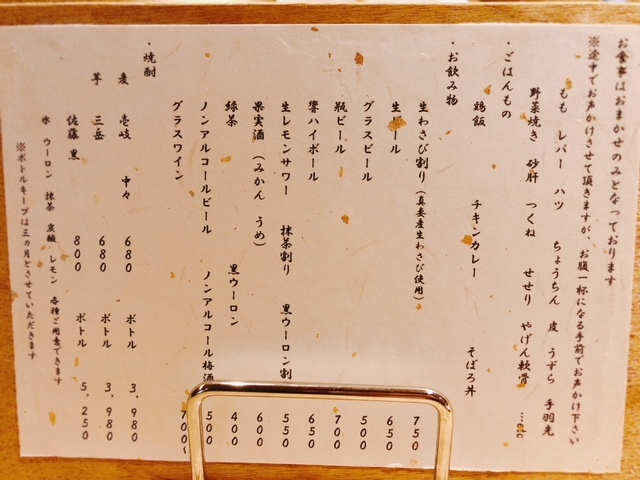 お食事はおまかせのみとなっております
※途中でお声かけさせて頂きますが、お腹一杯になる手前でお声かけ下さい
もも レバー ハツ ちょうちん 皮 うずら 手羽先
野菜焼き 砂肝 つくね せせり やげん軟骨 …etc
・ごはんもの
鶏飯 チキンカレー そぼろ丼
・お飲み物
生わさび割り(真妻産生わさび使用) 750
生ビール 650
グラスビール 500
瓶ビール 700
響ハイボール 650
生レモンサワー 抹茶割り 黒ウーロン割 550
果実酒(みかん うめ) 600
緑茶 黒ウーロン 400
ノンアルコールビール ノンアルコール梅酒 500
グラスワイン 700~
・焼酎
麦 壱岐 中々 680 ボトル 3,980
芋 三岳 680 ボトル 3,980
佐藤 黒 800 ボトル 5,250
水 ウーロン 抹茶 炭酸 レモン 各種ご用意できます
※ボトルキープは三ヵ月とさせていただきます